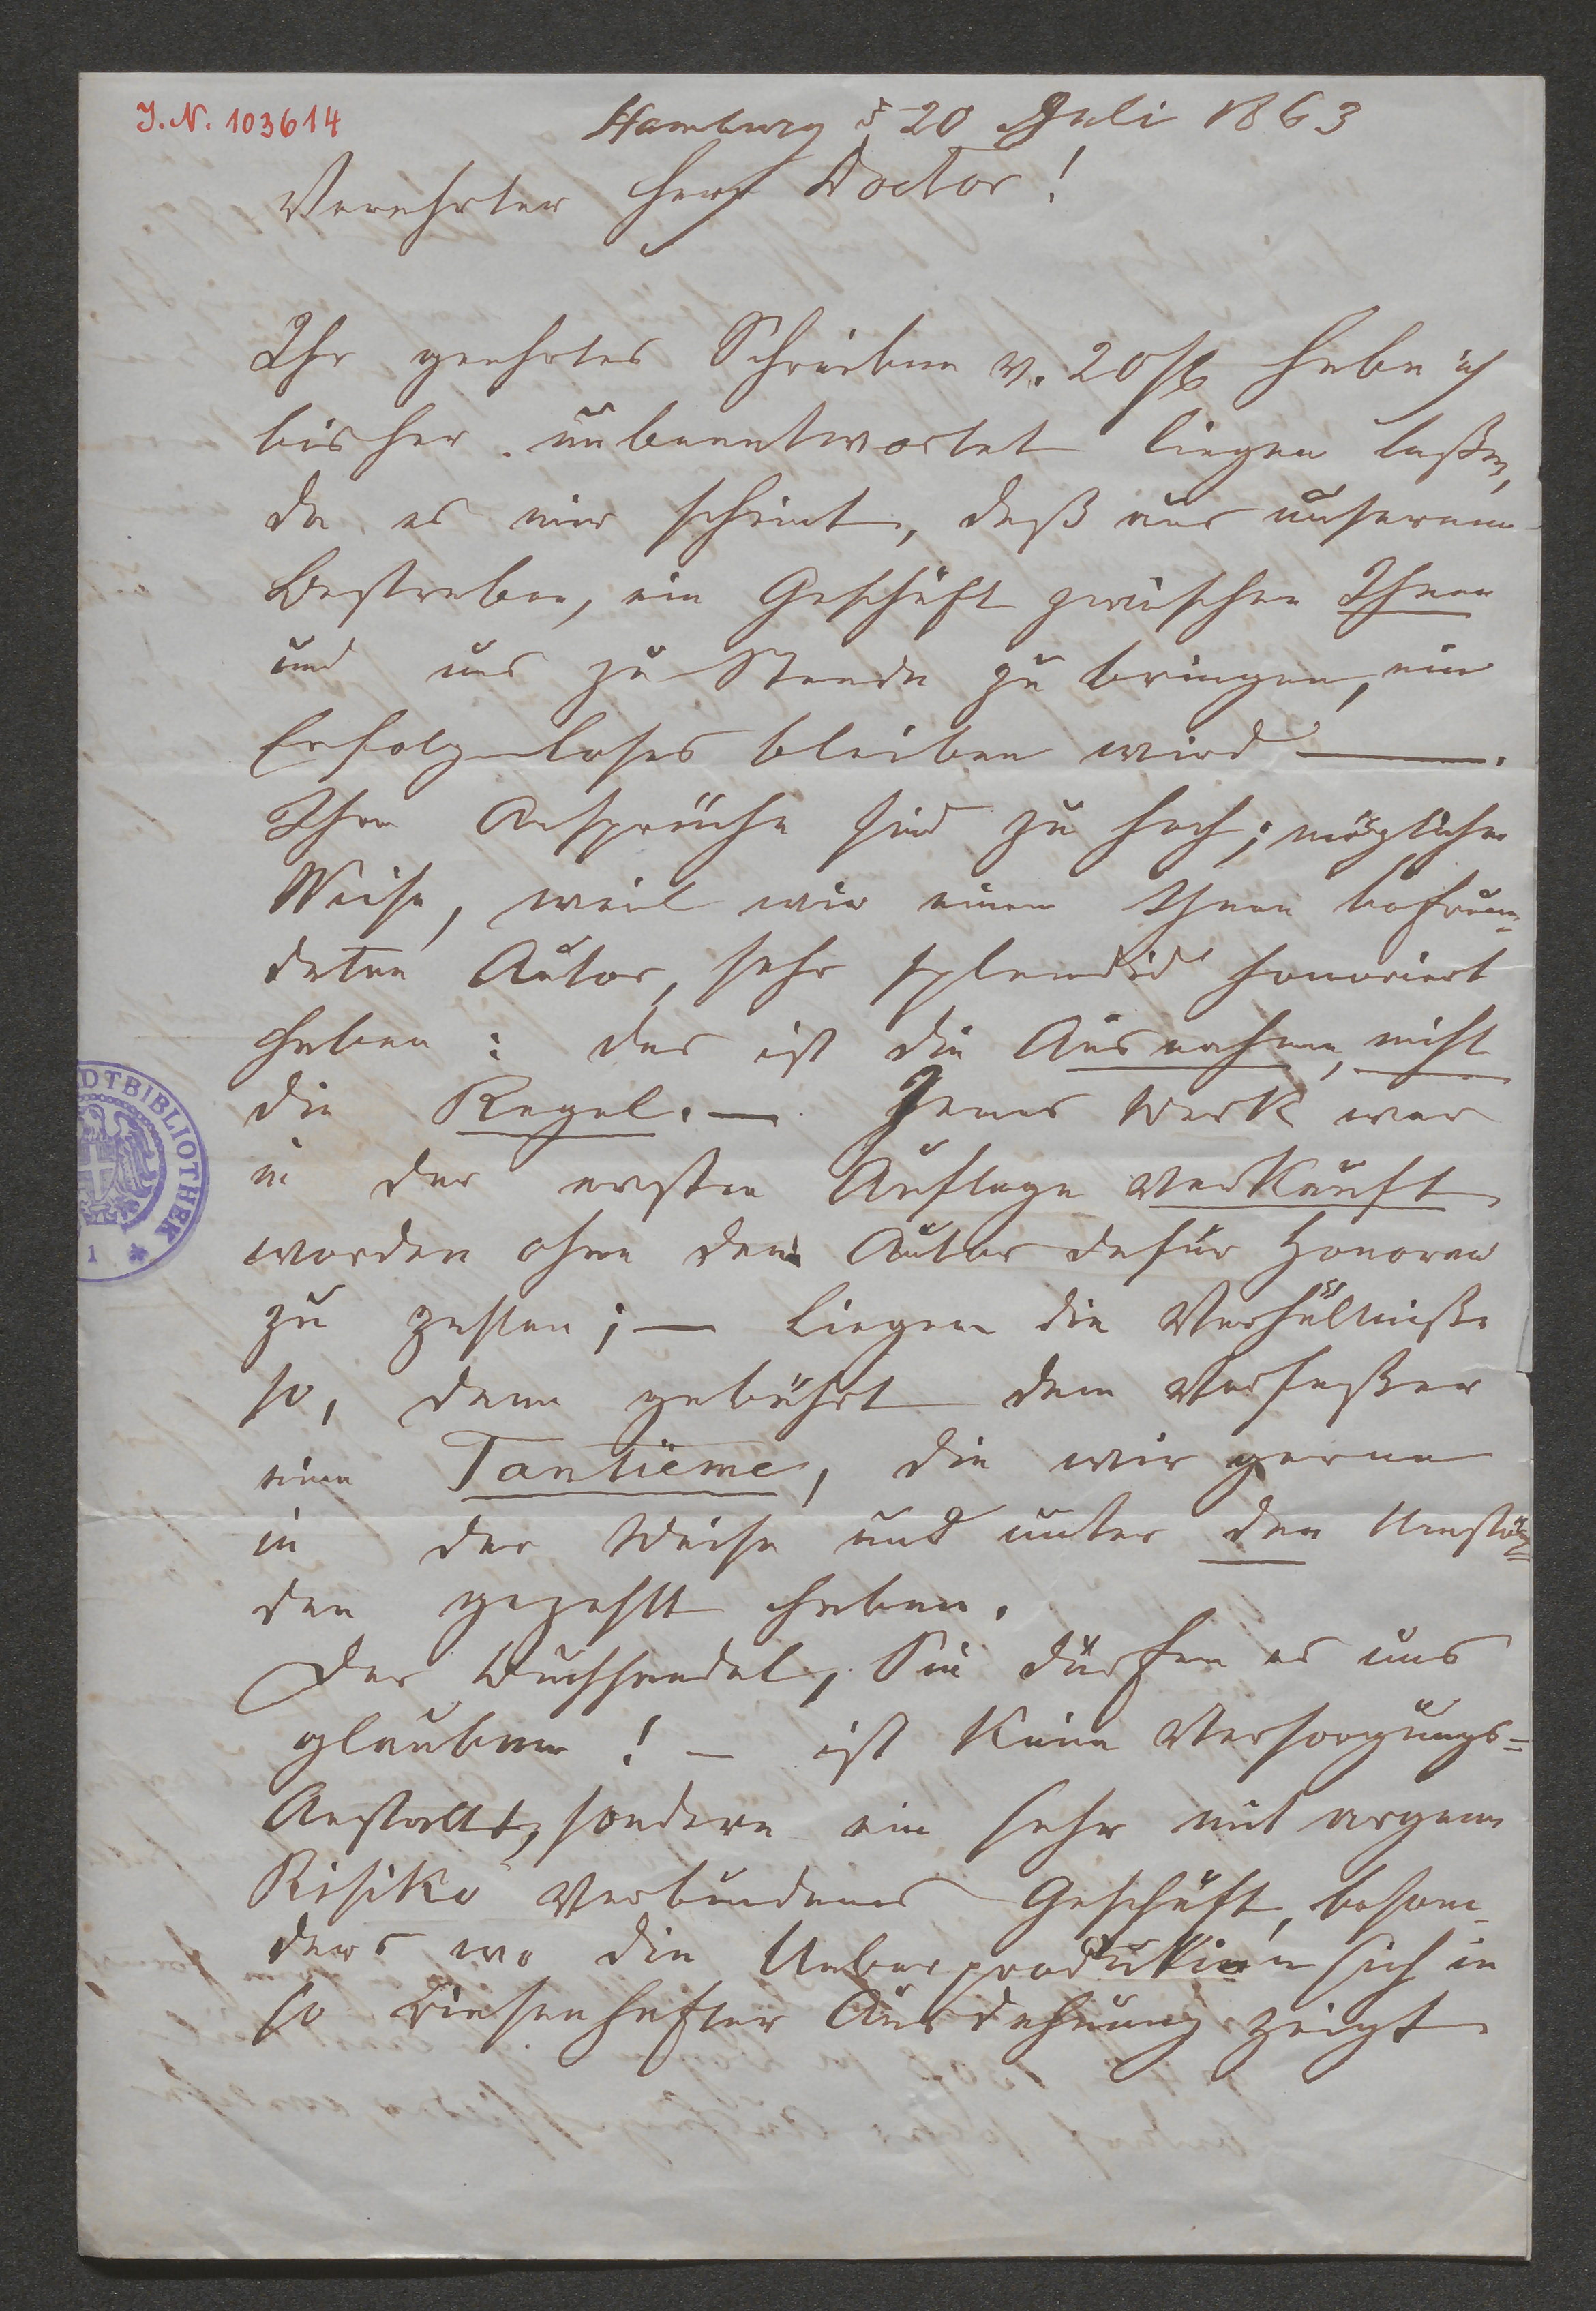 J. N. 103614
Hamburg d 20 Juli 1863
Verehrter Herr Doctor!
Ihr geehrtes Schreiben v. 20/6 habe ich
bisher unbeantwortet liegen laßen,
da es mir scheint, daß aus unserem
Bestreben, ein Geschäft zwischen Ihnen
und uns zu Stande zu bringen, ein
Erfolgloses bleiben wird —.
Ihre Ansprüche sind zu hoch; möglicher
Weise, weil wir einem Ihnen befreun-
deten Autor, sehr splendid honoriert
haben: das ist die Ausnahme, nicht
die Regel. — Jenes Werk war
in der ersten Auflage verkauft
worden ohne dem Autor dafür Honorar
zu zahlen; — liegen die Verhältniße
so, dann gebührt dem Verfaßer
eine Tantième, die wir gerne
in der Weise und unter den Umstän=
den gezahlt haben.
Der Buchhandel, Sie dürfen es uns
glauben! — ist keine Versorgungs=
Anstallt, sondern ein sehr mit argem
Risiko verbundenes Geschäft, beson-
ders wo die Ueberproduktion sich in
so riesenhafter Ausdehnung zeigt
DTBIBLIOTHEK
1